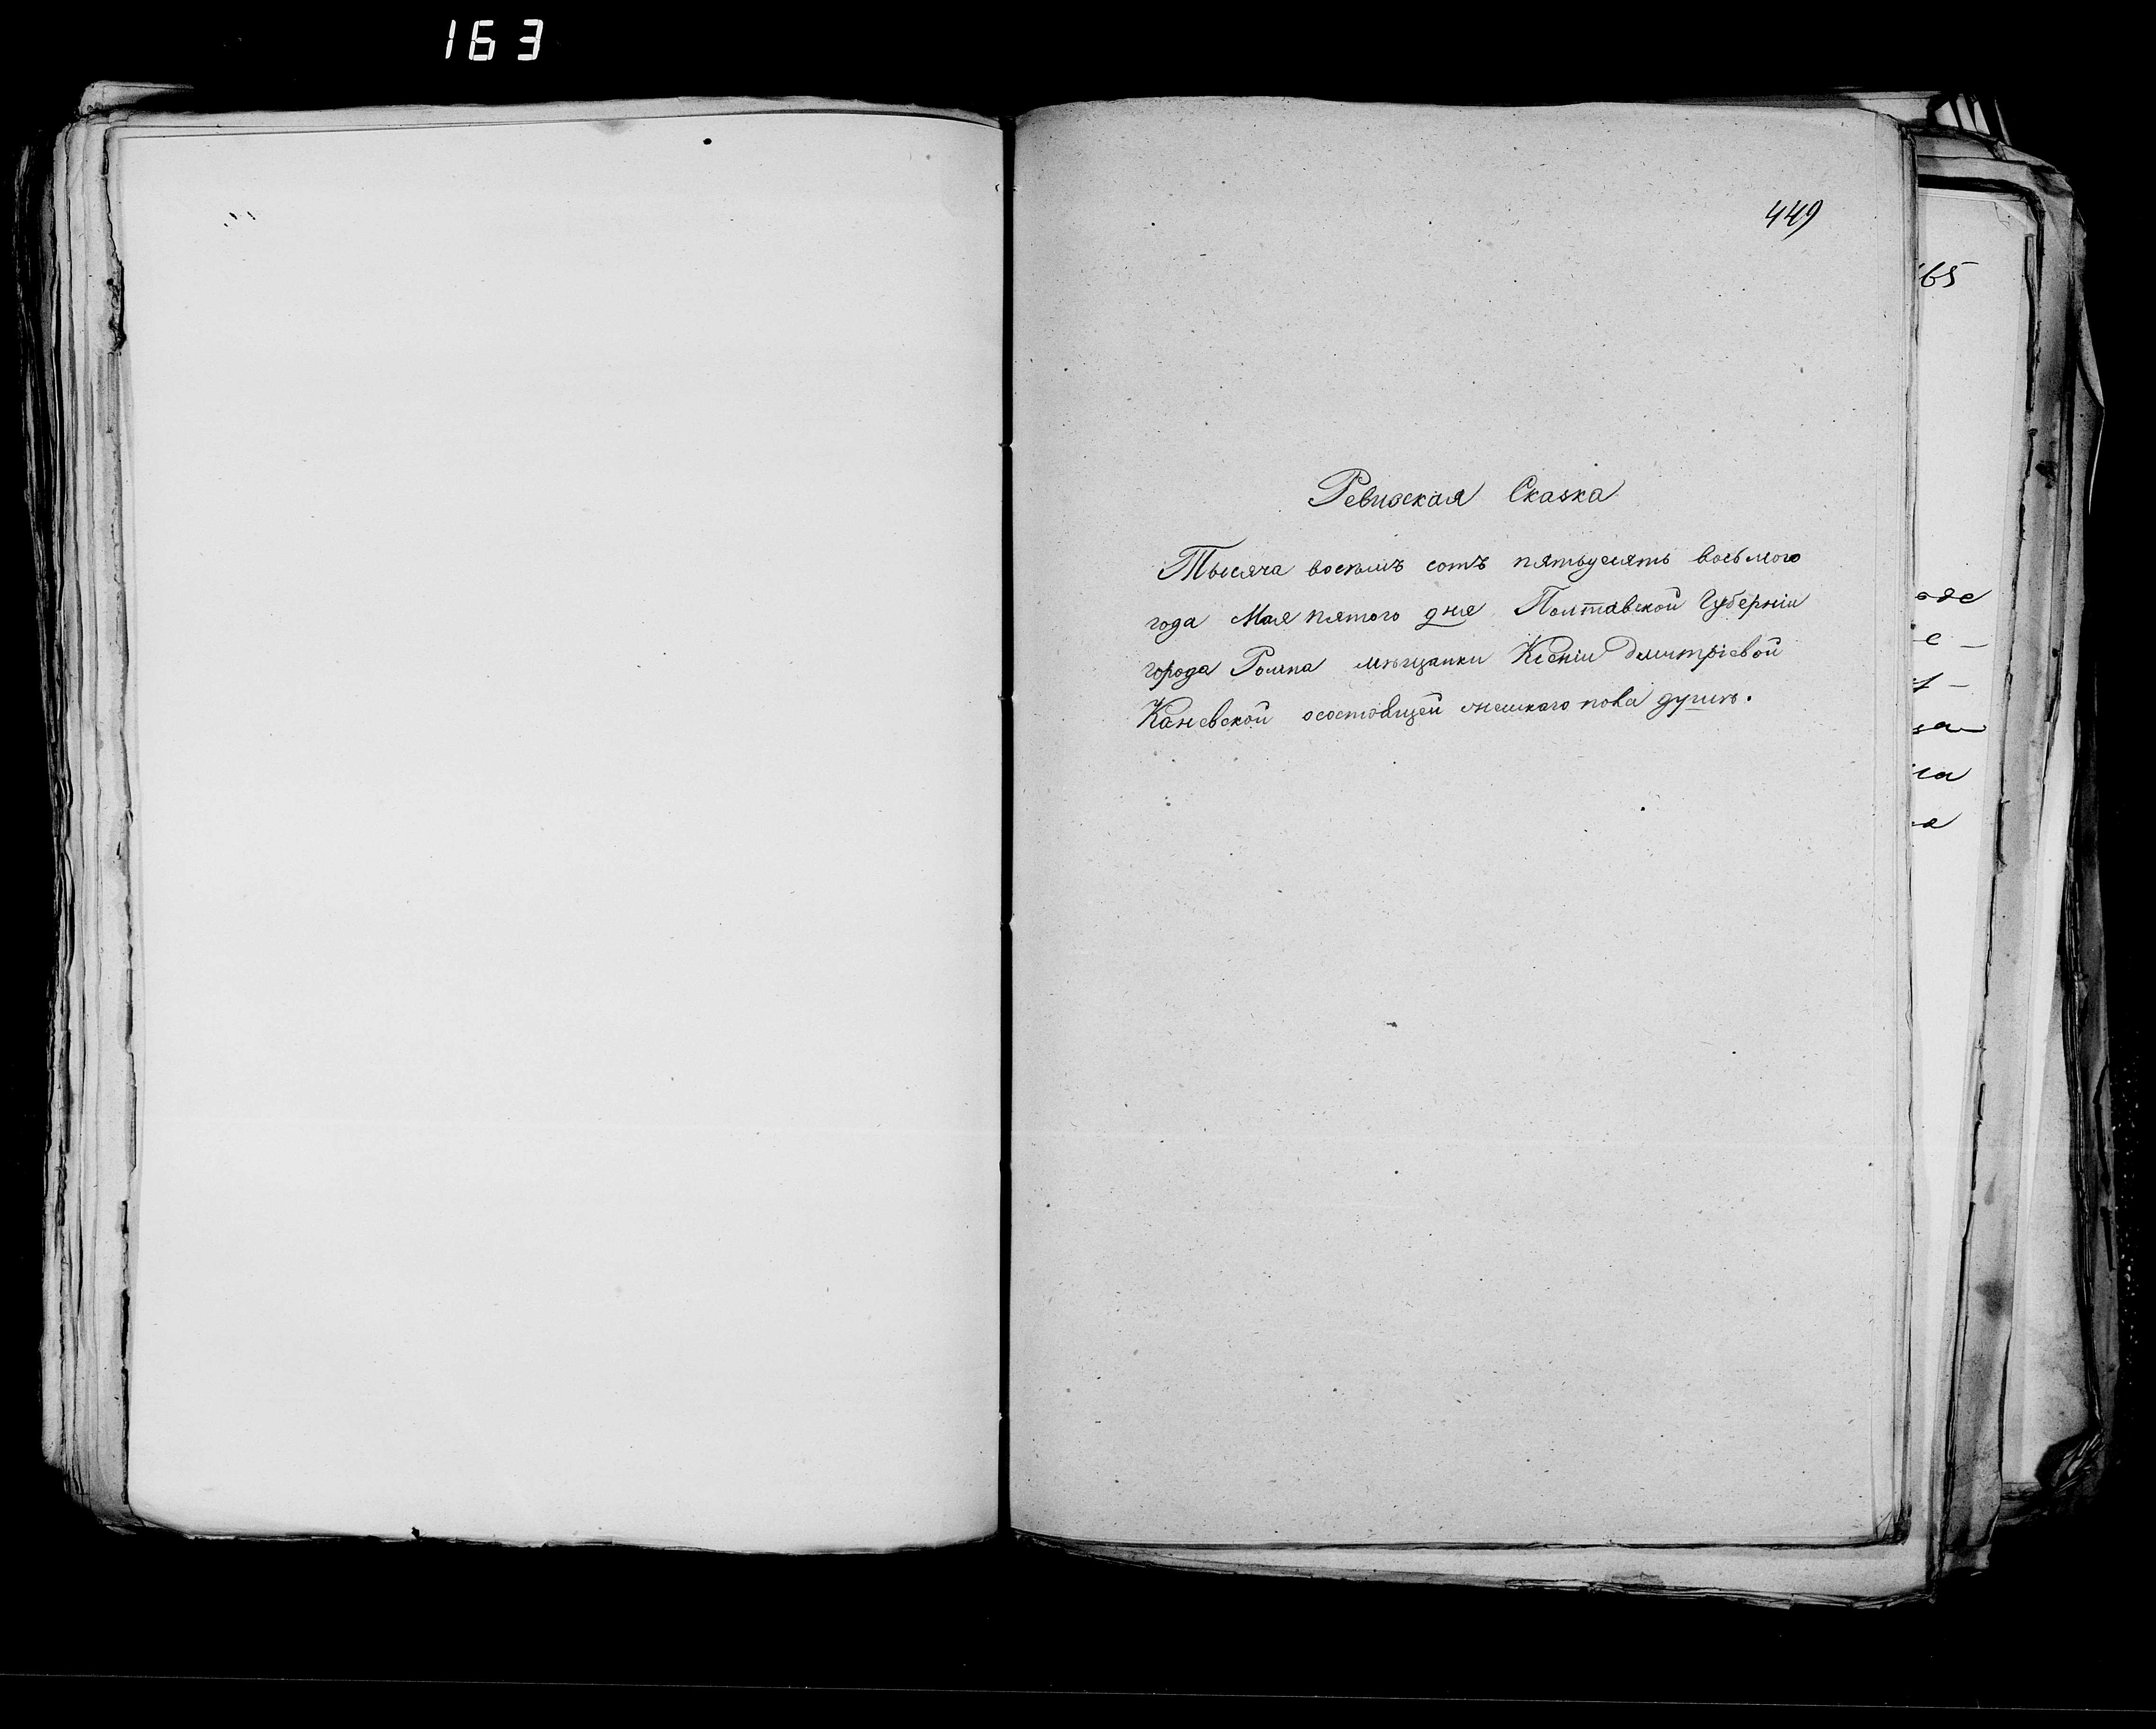 163
449
Ревизская Сказка
Тысяча восемь сотъ пятьдесятъ восьмого
года Мая пятого дня Полтавской Губерніи
города Ромна мѣщанки Ксеніи Дмитріевой
Каневской осостоящей женскаго пола душѣ.
65
оде
е -
за
на
а